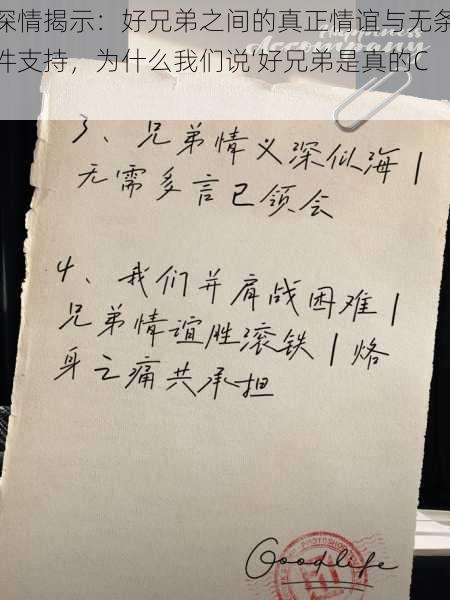 深情揭示：好兄弟之间的真正情谊与无条
件支持，为什么我们说‘好兄弟是真的C
Happiness
Accompany
3、兄弟情义深似海|
无需多言已领会
4、我们并肩战困难|
兄弟情谊胜滚铁|烙
身之痛共承担
Goodlife
PHOTOSHOP